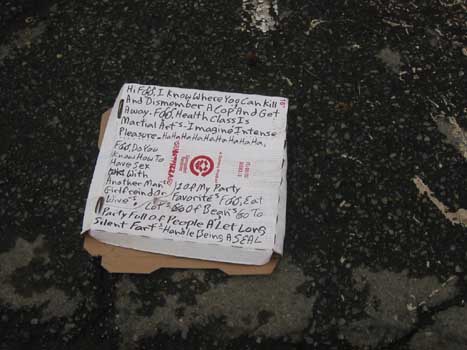 Hi Foo, I Know Where You Can Kill
And Dismember A Cop And Get
Away. Foo, Health Class Is
Martial Art's-Imagine Intense
Pleasure-HaHaHaHaHaHaHaHa.
Foo, Do You
Know How To
Have Sex
With
Another Man's
Girlfreind Or
Wive's
1 Of My Party
Favorite's Foo, Eat
Lot's Of Bean's Go To
Party Full Of People A Let Long
Silent Fart's-Handle Being A SEAL